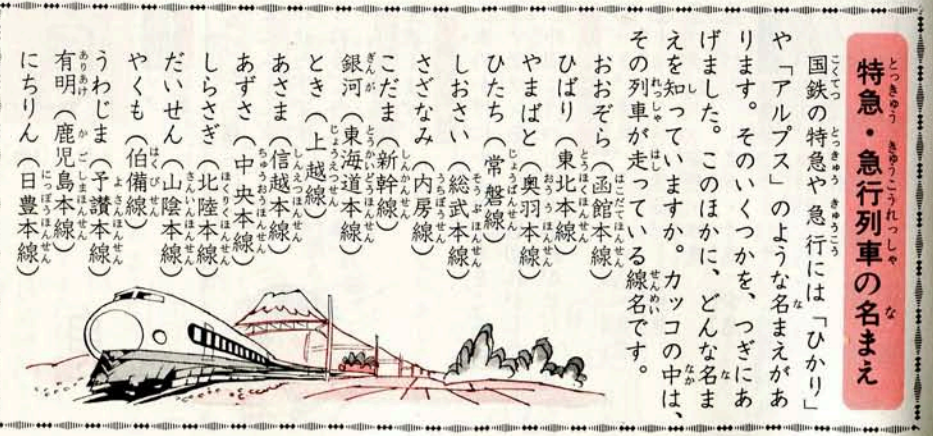 特急・急行列車の名まえ
国鉄の特急や急行には「ひかり」
や「アルプス」のような名まえがあ
ります。そのいくつかを、つぎにあ
げました。このほかに、どんな名ま
えを知っていますか。カッコの中は、
その列車が走っている線名です。
おおぞら（函館本線）
ひばり（東北本線）
やまばと（奥羽本線）
ひたち（常磐線）
しおさい（総武本線）
さざなみ（内房線）
こだま（新幹線）
銀河（東海道本線）
とき（上越線）
あさま（信越本線）
あずさ（中央本線）
しらさぎ（北陸本線）
だいせん（山陰本線）
やくも（伯備線）
うわじま（予讃本線）
有明（鹿児島本線）
にちりん（日豊本線）